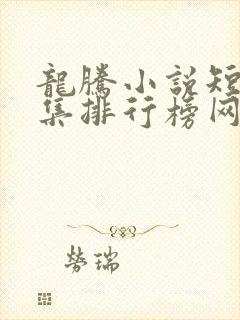 龍騰小說短
集排行榜网
勞瑞